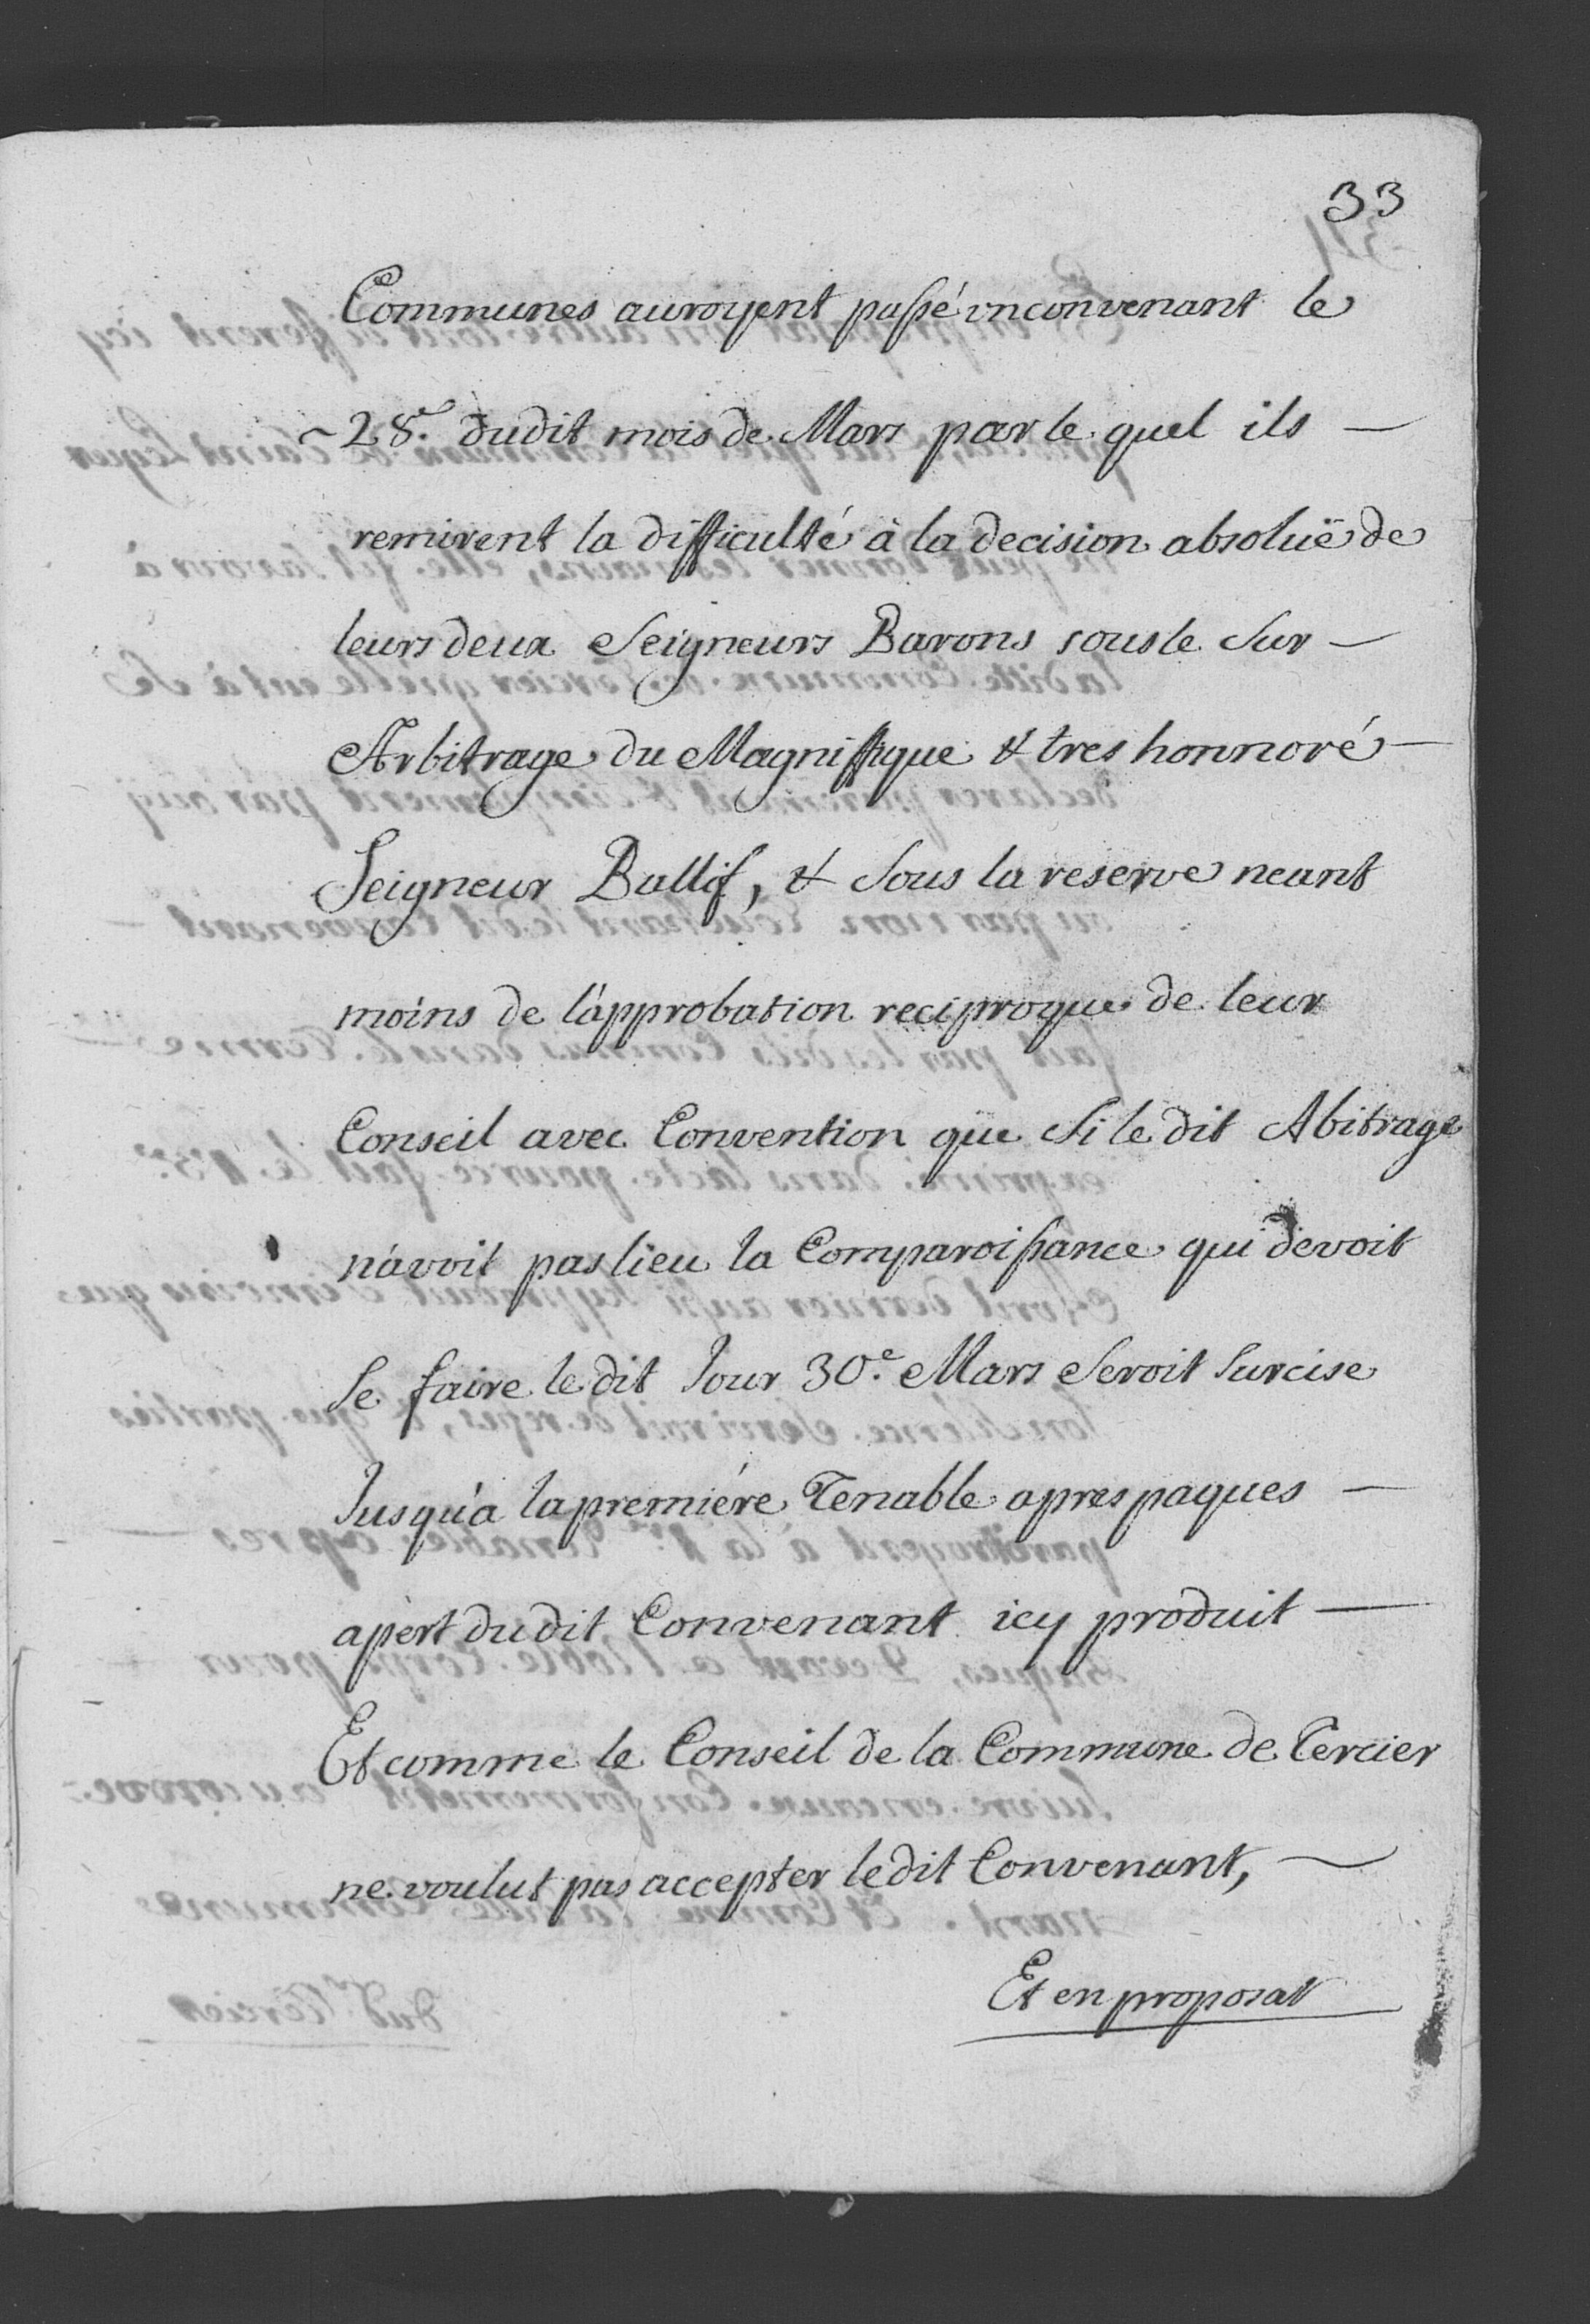 33
Communes auroyent passé un convenant le
28.e dudit mois de Mars par le quel ils
remirent la difficulté à la decision absoluë de
leurs deux Seigneurs Barons sous le Sur-
Arbitrage du Magnifique & tres honnoré
Seigneur Ballif, & Sous la reserve neant
moins de l'approbation reciproque de leur
Conseil avec Convention que Si le dit Abitrage
n'avoit pas lieu la Comparoissance qui devoit
Se faire le dit Jour 30.e Mars Seroit Surcise
Jusqu'a la premiére Tenable apres paques
apert du dit Convenant icy produit
Et comme le Conseil de la Commune de Tercier
ne voulut pas accepter le dit Convenant,
Et en proposat